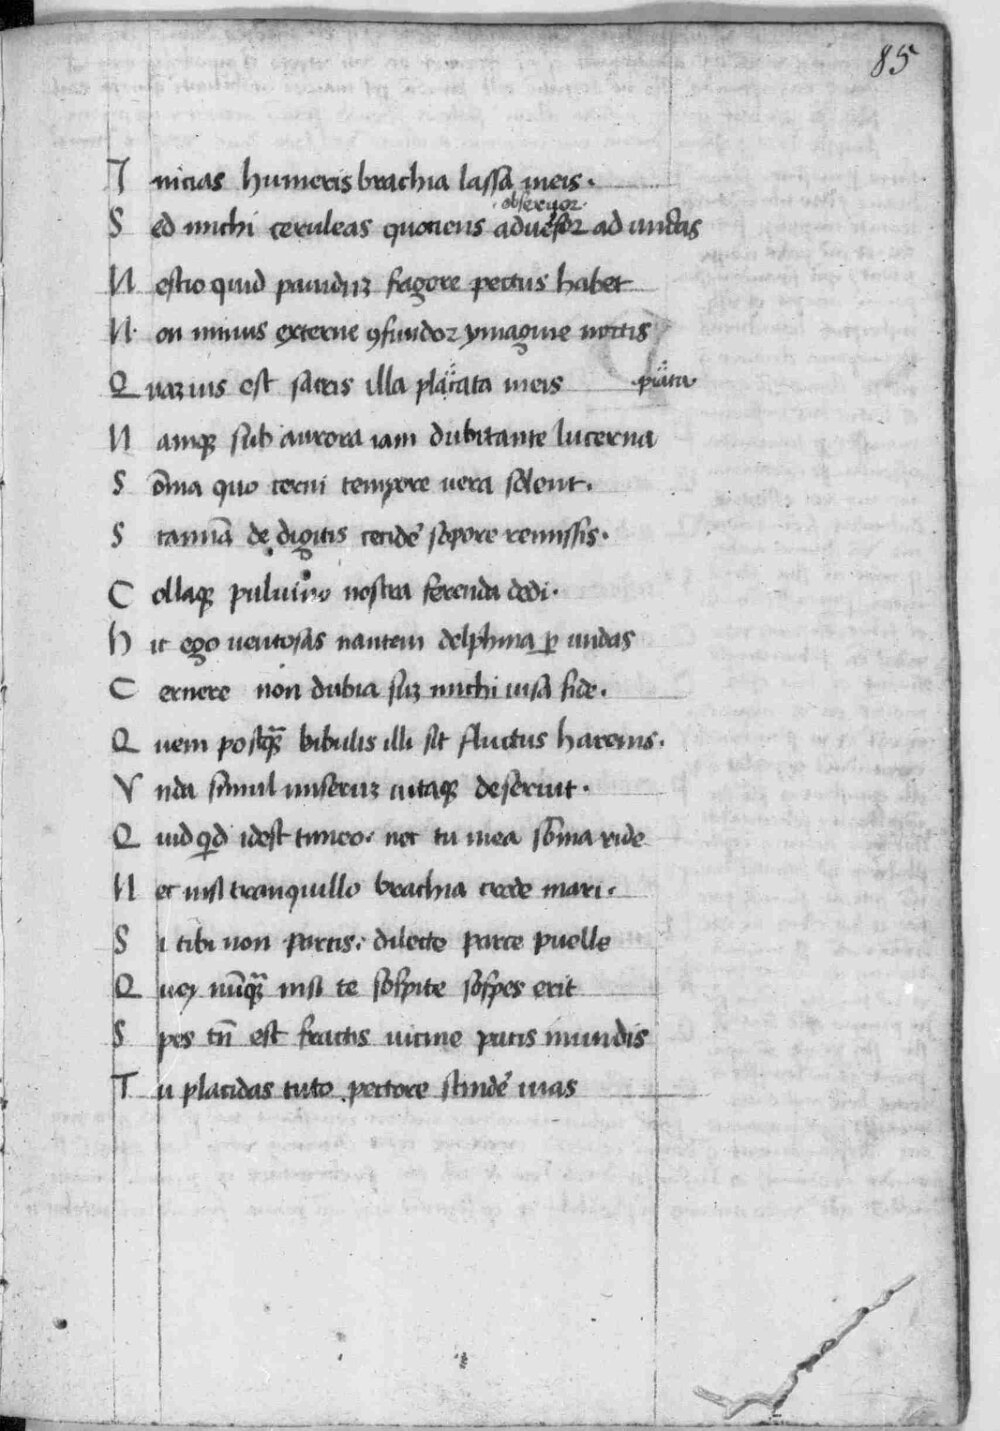 85
Inicias humeris brachia lassa meis.
·obseruor·
Sed michi ceruleas quociens aduersor ad undas
Nescio quid pauiduꝫ frigore pectus habet
Non minus externe ꝯfundor ymagine noctis
Quaꝫuis est sacris illa placata meis ·piata·
Namqꝫ sub aurora iam dubitante lucerna
Sōnia quo cerni tempore vera solent.
Stamīa de digitis cecidē sopore remissis.
Collaqꝫ puluino nostra ferenda dedi.
Hic ego uentosas nantem delphina ꝑ undas
Cernere non dubia suꝫ michi uisa fide.
Quem postqꝫ̄ bibulis illisit fluctus harenis.
Vnda simul miseruꝫ uitaqꝫ deseruit.
Quidqͥd idest timeo. nec tu mea sōnia ride
Nec nisi tranquillo brachia crede mari.
Si tibi non parcis. dilecte parce puelle
Que nūqꝫ̄ nisi te sospite sospes erit
Spes tn̄ est fractis uicine pacis in undis
Tu placidas tuto pectore scindē uias